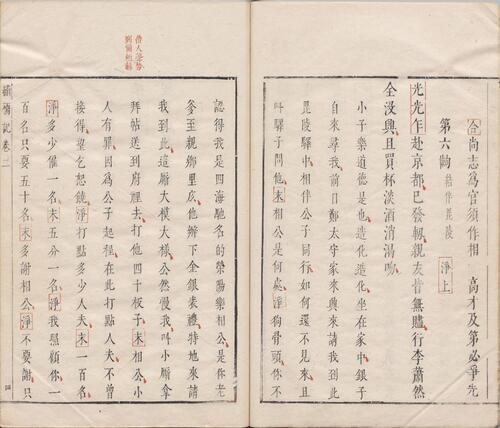 合尚志為官須作相　高才及第必爭先
第六齣　結伴毘陵　淨上
光光乍赴京都已發軔親友皆無贐行李蕭然
全没興且買杯淡酒消渴吻
小子樂道德是也造化造化坐在家中銀子
自來尋我前日鄭太守家來興來請我到此
毘陵驛中相伴公子同行如何還不見來且
叫驛子問他末相公是何處淨狗骨頭你不
借人聲勢
認得我是四海馳名的滎陽樂相公是你老
爹至親鄉里庅他辦下金銀裘禮特地來請
我到此這厮大模大樣公然慢我叫小厮拿
拜帖送到府裡去打他四十板子末相公小
人有罪因為公子起程在此打點人夫不曾
接得望乞恕饒淨打點多少人夫末一百名
淨多少僱一名末五分一名淨我照顧你一
百名只要五十名末多謝相公淨不要謝只
繡襦記卷二　四